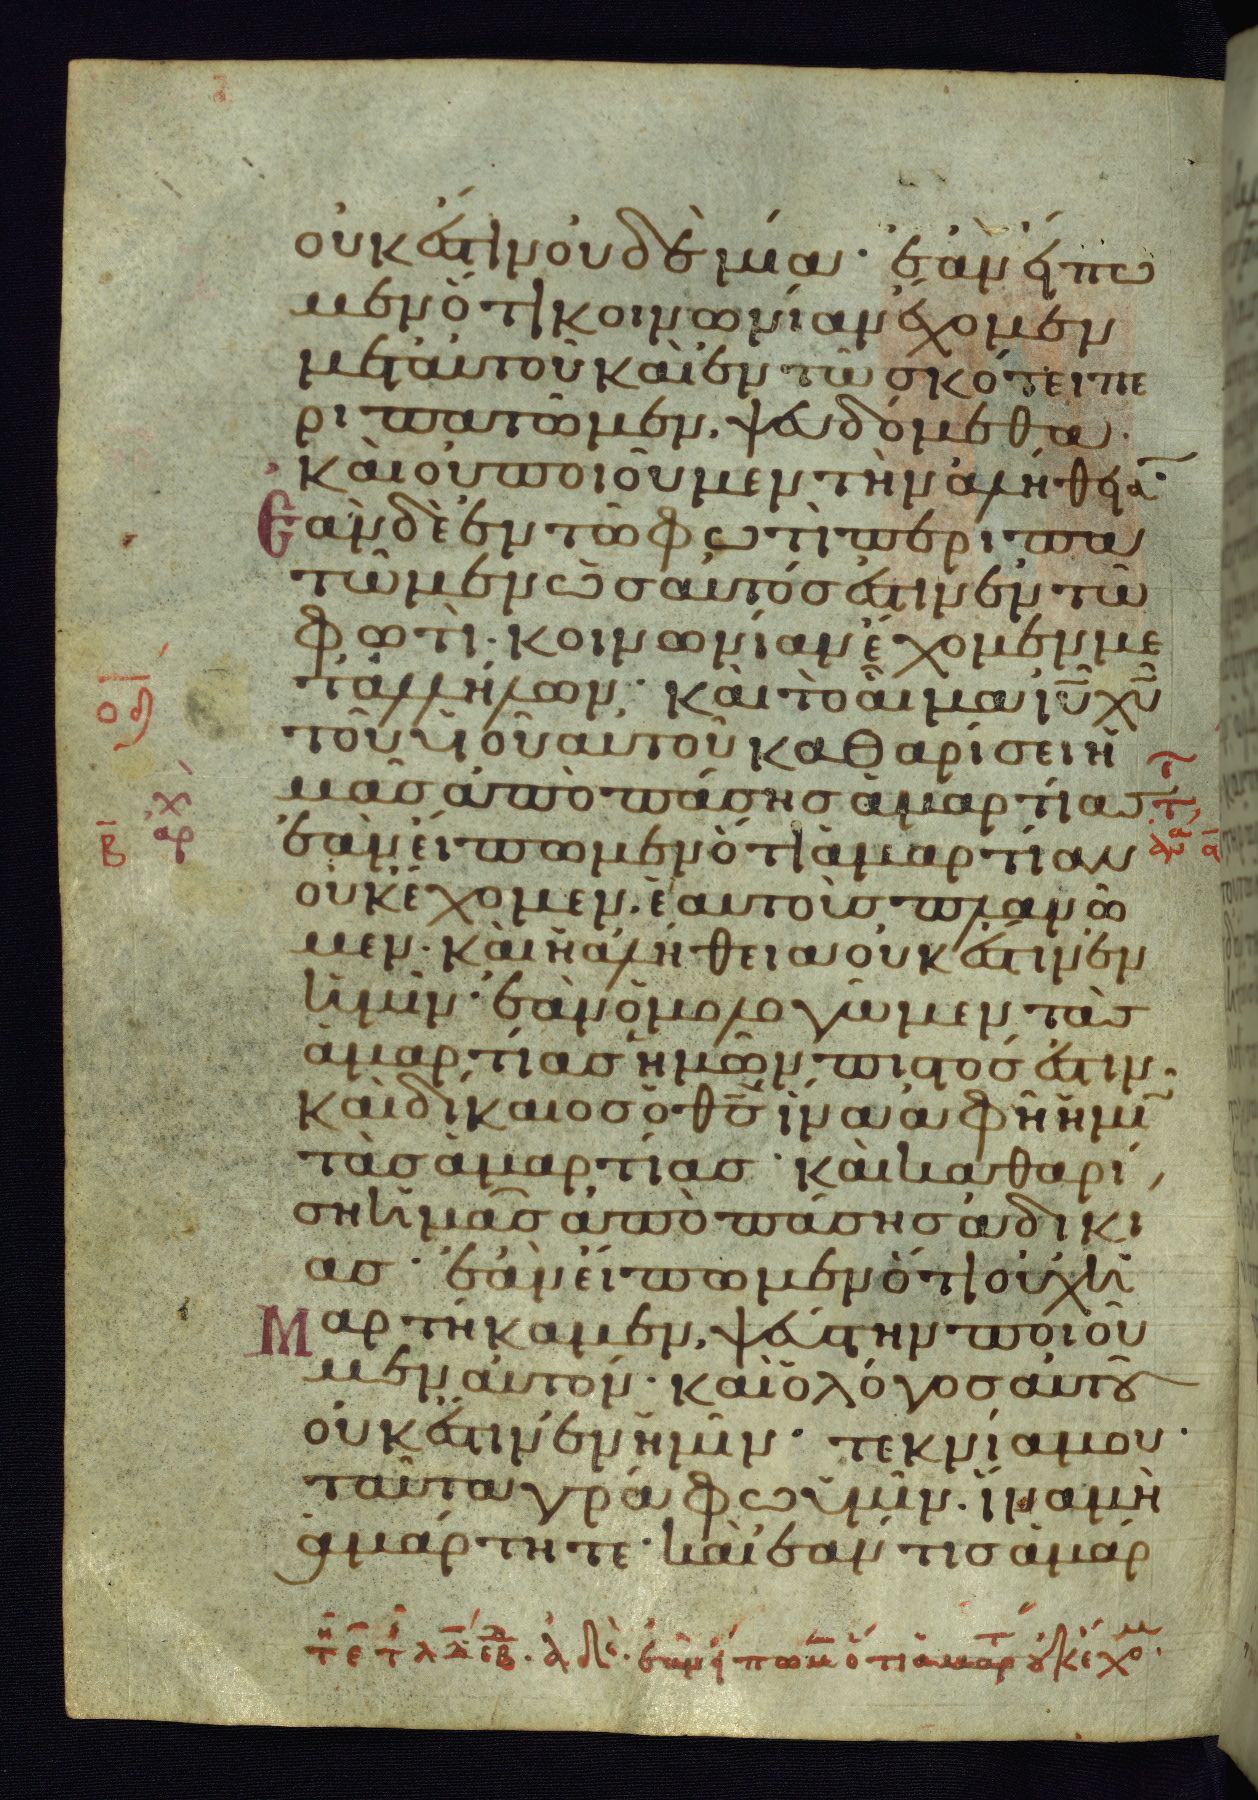 οὐκ ἔστιν οὐδεμία· ἐὰν εἴπω
μεν ὅτι κοινωνίαν ἔχομεν
μετ' αὐτοῦ καὶ ἐν τῶ σκότει πε
ριπατῶμεν, ψευδόμεθα·
καὶ οὐ ποιοῦμεν τὴν ἀλήθειαν·
Ἐὰν δὲ ἐν τῶ φωτὶ περιπα
τῶμεν ὡς αὐτός ἐστιν ἐν τῶ
φωτὶ· κοινωνίαν ἔχομεν με
τ' ἀλλήλων· καὶ τὸ αἷμα ιῦ χῦ
τοῦ υἱοῦ αὐτοῦ καθαρίσει ἡ
μᾶς ἀπὸ πάσης ἁμαρτίας
ἐὰν εἴπωμεν ὅτι ἁμαρτίαν
οὐκ ἔχομεν, ἑαυτοὺς πλανῶ
μεν· καὶ ἡ ἀλήθεια οὐκ ἔστιν ἐν
ἡμῖν· ἐὰν ὁμολογῶμεν τὰς
ἁμαρτίας ἡμῶν πιστός ἐστιν·
καὶ δίκαιος ὁ θς ἵνα ἀφῆ ἡμῖ
τὰς ἁμαρτίας· καὶ καθαρί
ση ἡμᾶς ἀπὸ πάσης ἀδικί
ας· ἐὰν εἴπωμεν ὅτι οὐχ ἡ
Μαρτήκαμεν, ψεύστην ποιοῦ
μεν αὐτόν· καὶ ὁ λόγος αὐτοῦ
οὐκ ἔστιν ἐν ἡμῖν· τεκνία μου·
ταῦτα γράφω ὑμῖν· ἵνα μὴ
ἁμάρτητε· καὶ ἐάν τις ἁμάρ
οδ
αρχ
β
ἐὰν εἴπωμ ὅτι ἁμαρτ οὐκ ἔχομ